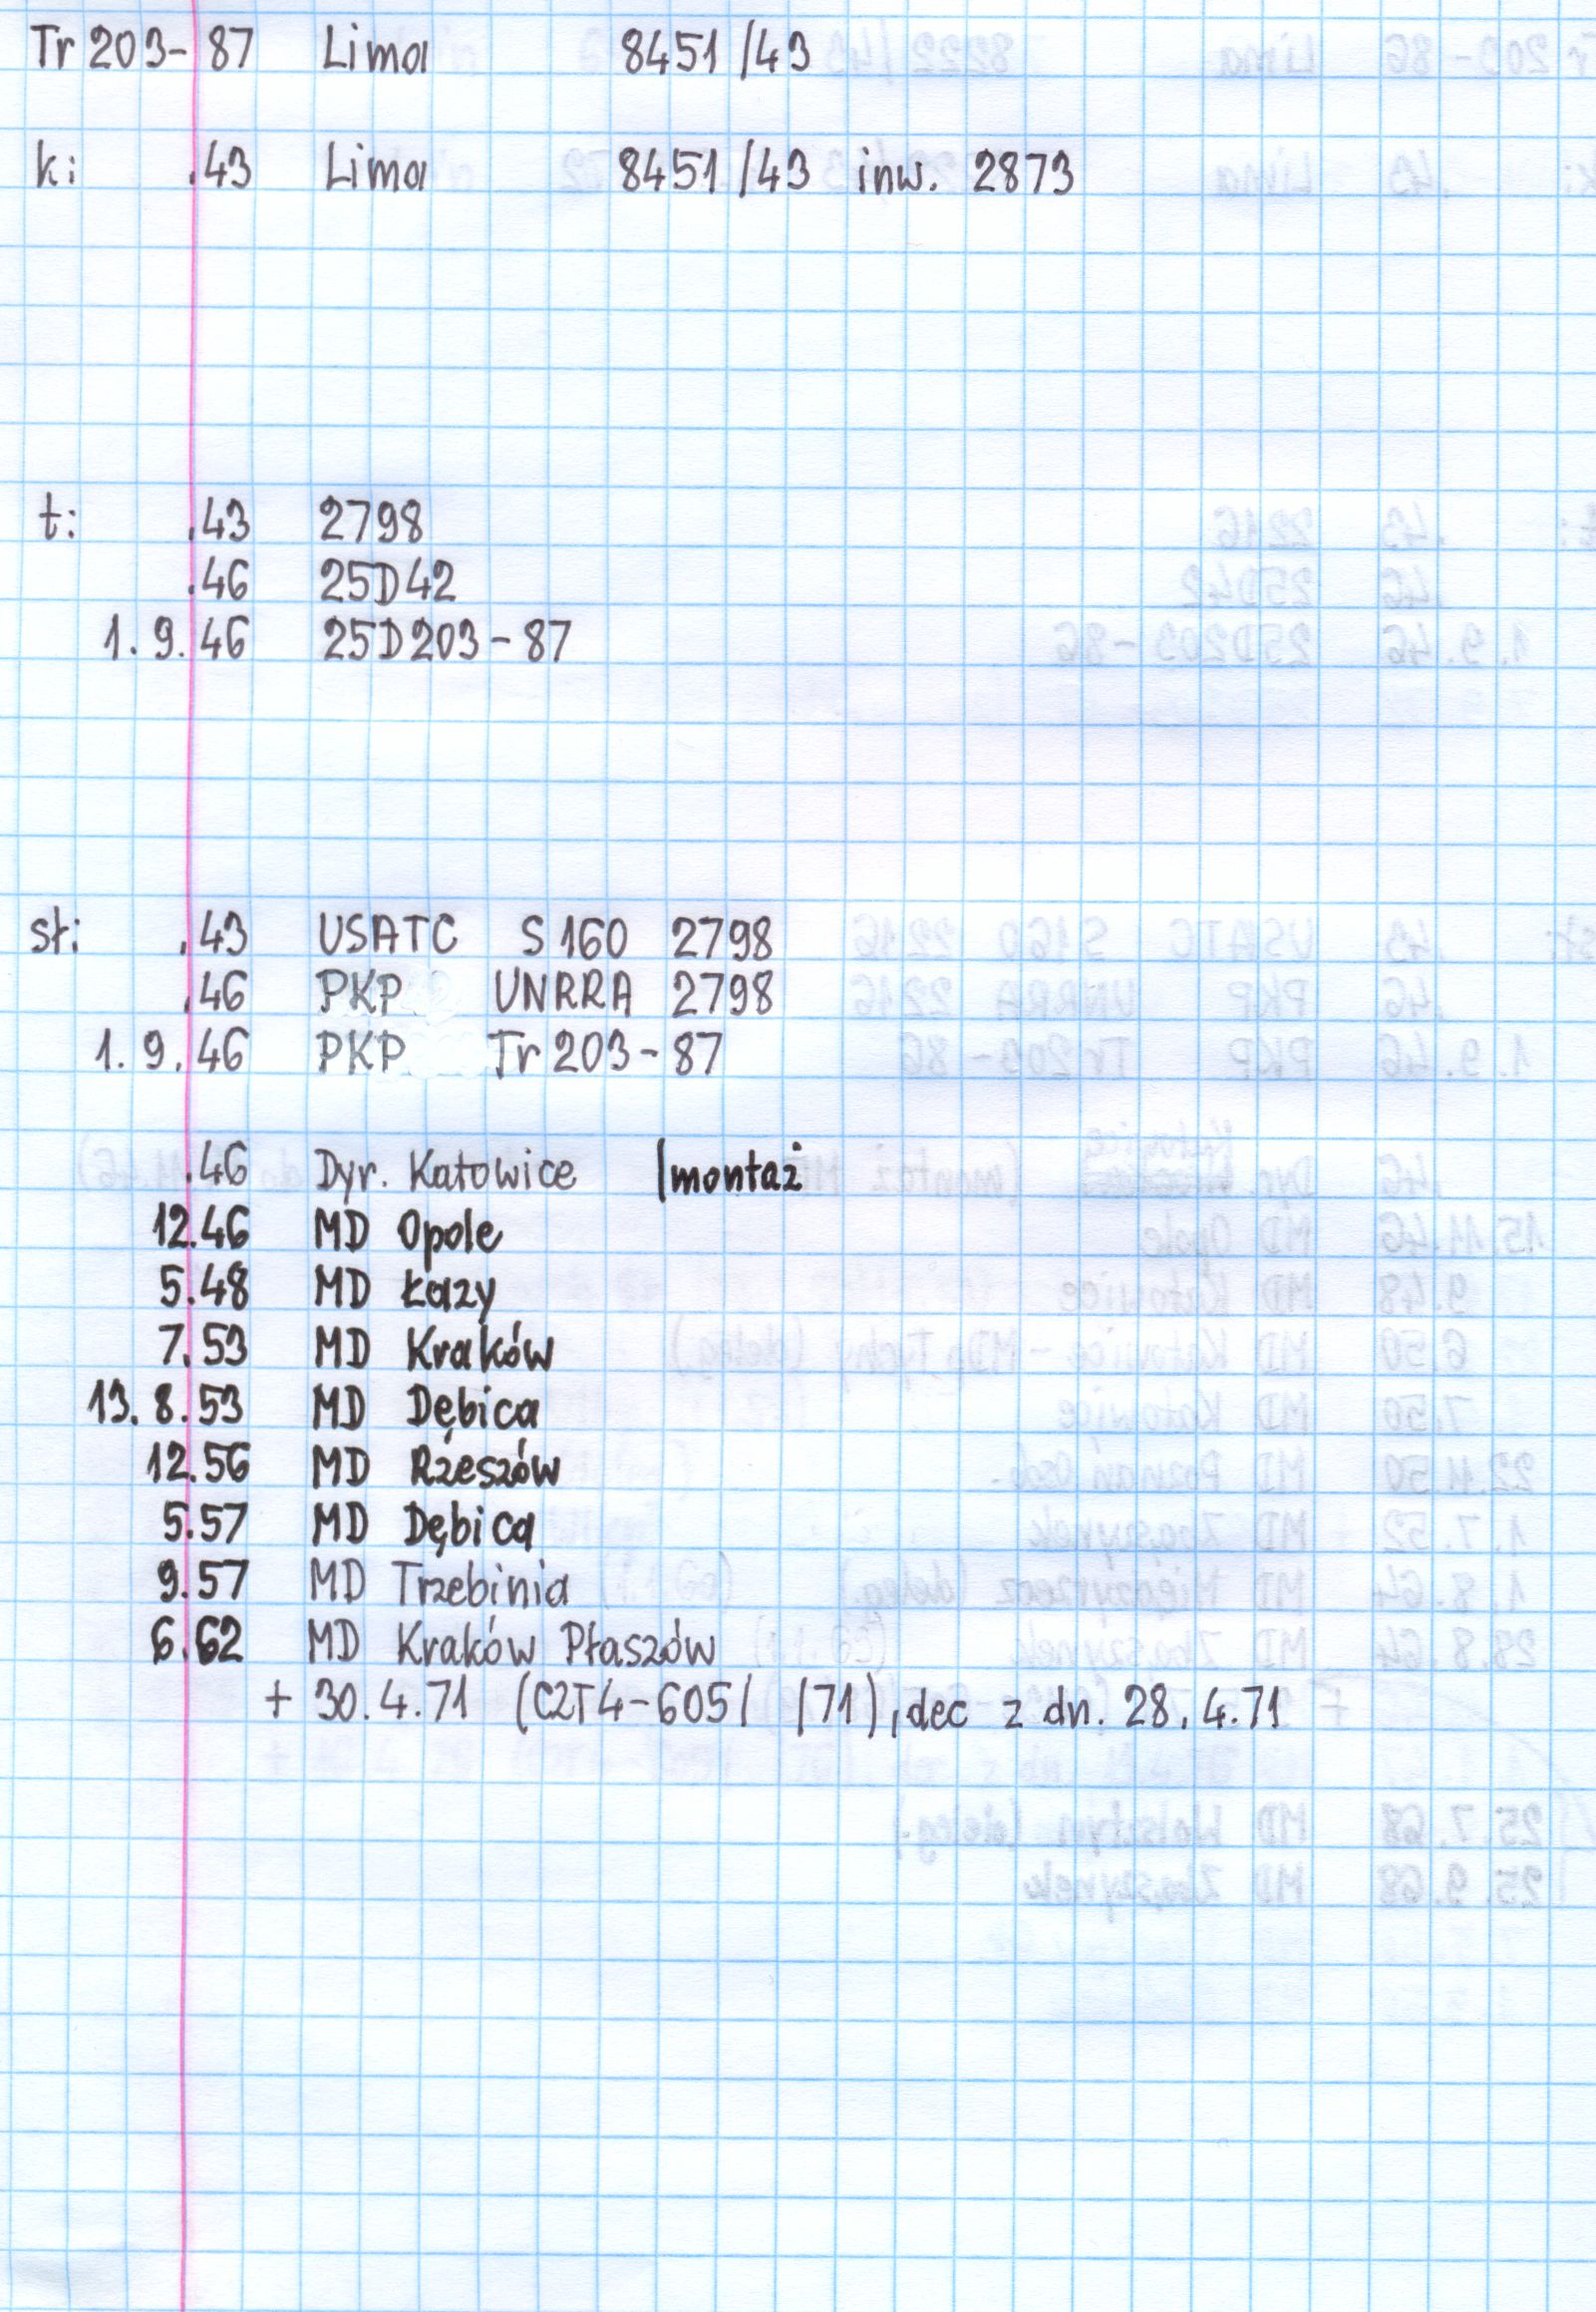 Tr 203-87 Lima 8451/43
k: .43 Lima 8451/43 inw. 2873
t: .43 2798
.46 25D42
1.9.46 25D203-87
sł: .43 USATC S160 2798
.46 PKP UNRRA 2798
1.9.46 PKP Tr 203-87
.46 Dyr. Katowice (montaż
12.46 MD Opole
5.48 MD Łazy
7.53 MD Kraków
13.8.53 MD Dębica
12.56 MD Rzeszów
5.57 MD Dębica
9.57 MD Trzebinia
6.62 MD Kraków Płaszów
+ 30.4.71 (C2T4-605/ /71), dec z dn. 28.4.71